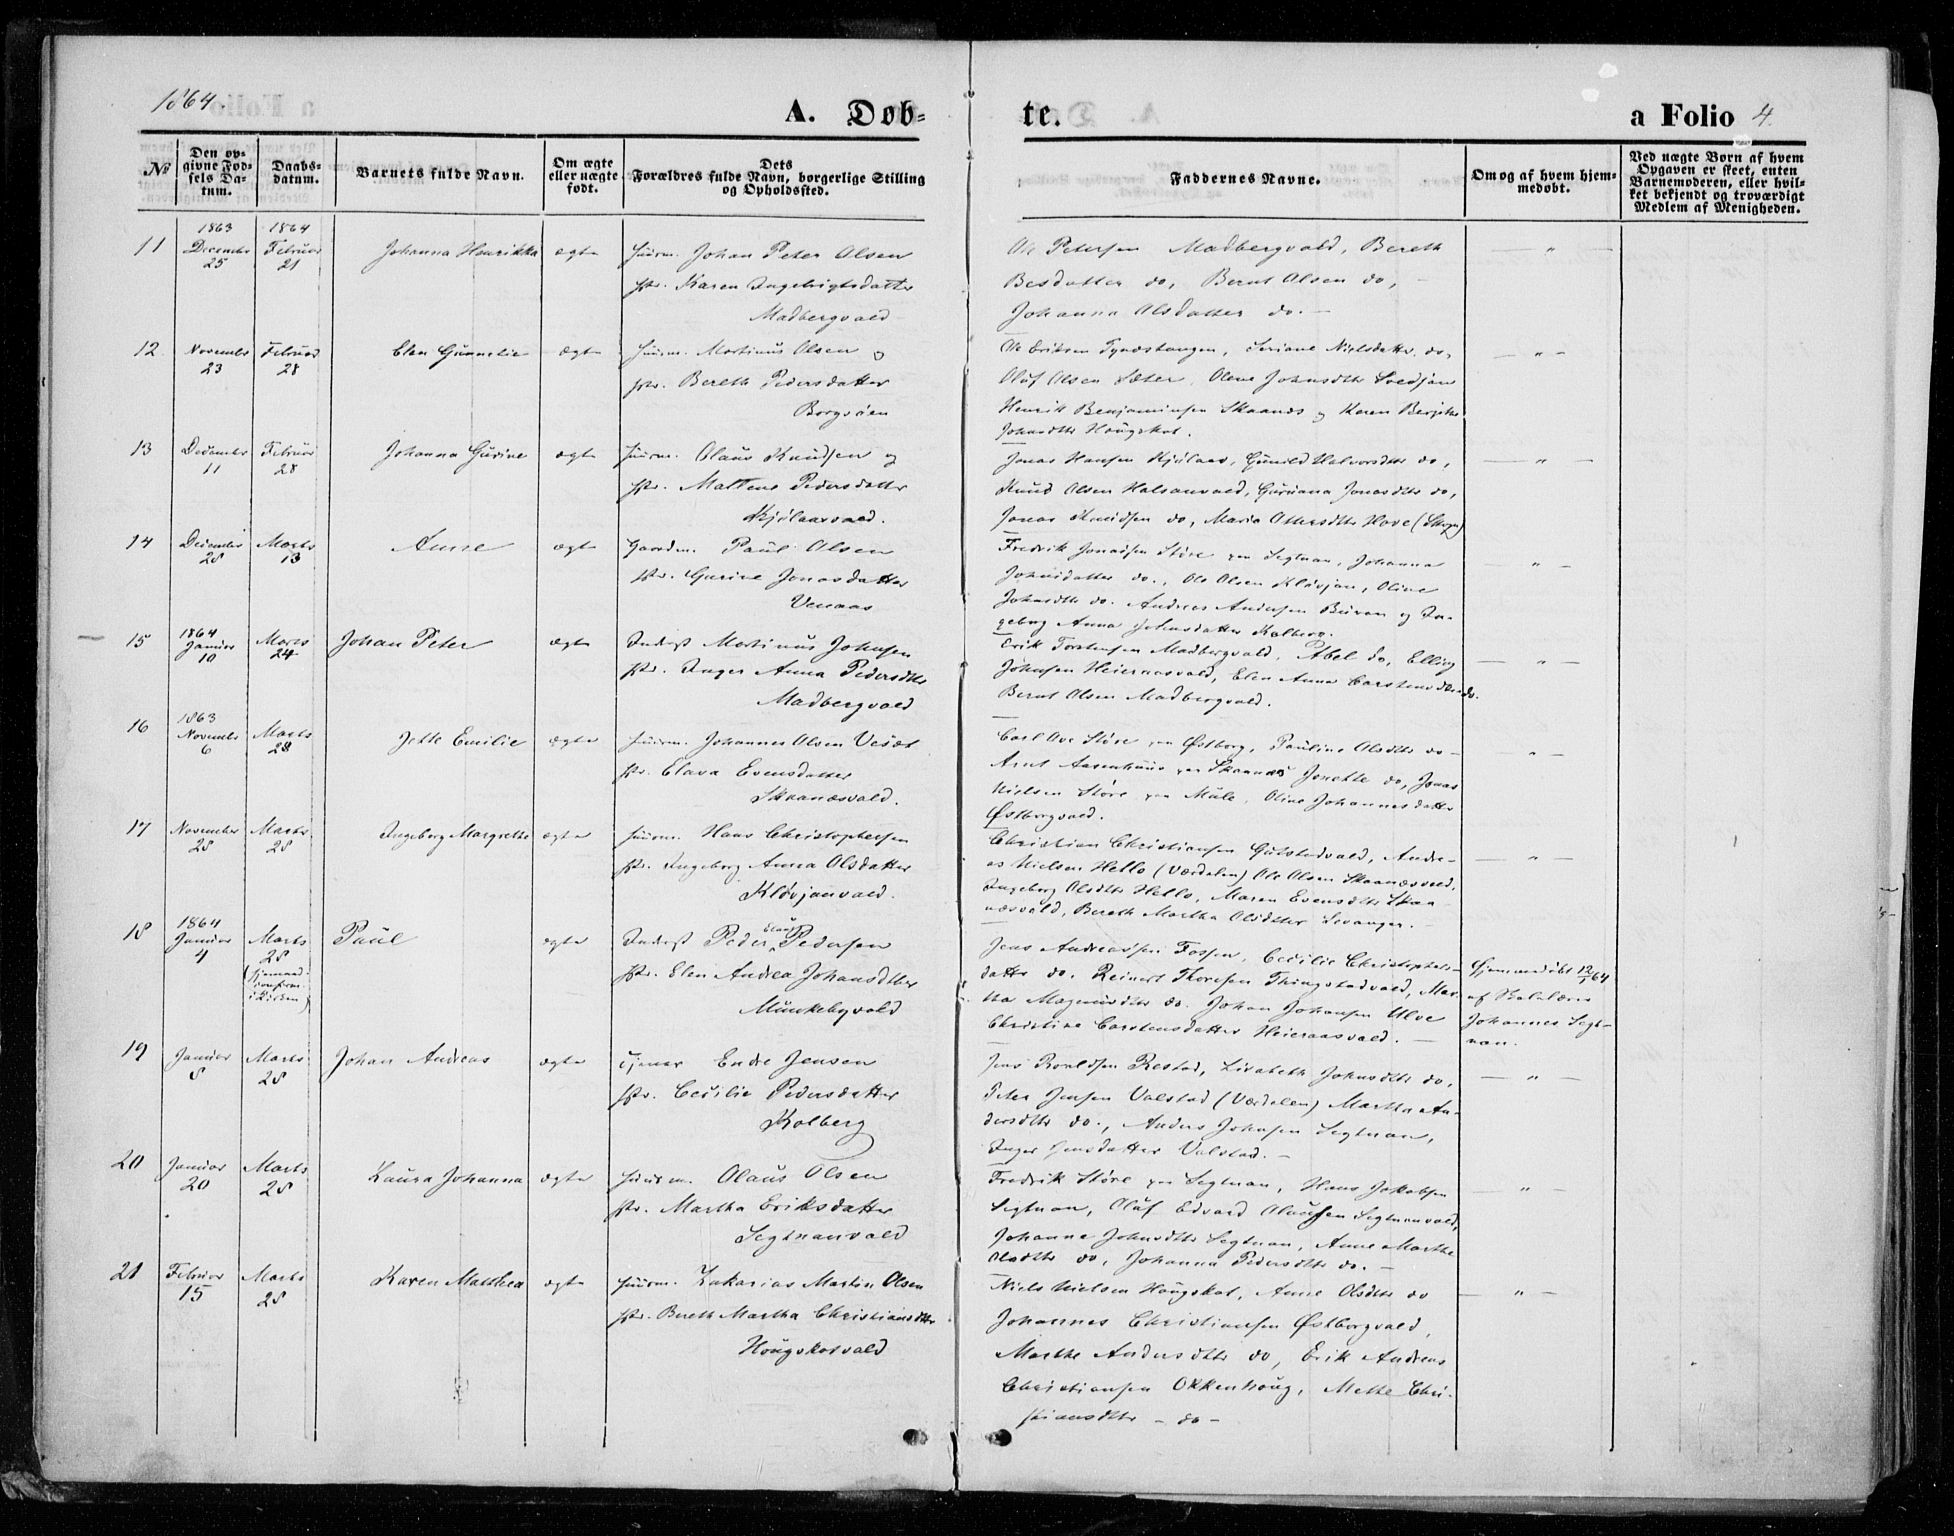 1864.
A. Døb-
te.
a Folio 4.
№
Den op-
givne Fød-
sels Da-
tum.
Daabs-
datum.
Barnets fulde Navn.
Om ægte
eller uægte
født.
Dets
Forældres fulde Navn, borgerlige Stilling
og Opholdssted.
Faddernes Navne.
Om og af hvem hjem-
medøbt.
Ved uægte Børn af hvem
Opgaven er skeet, enten
Barnemoderen, eller hvil-
ket bekjendt og troværdigt
Medlem af Menigheden.
11
1863
December
25
1864
Februar
21
Johanna Henrikka
ægte
Huusm. Johan Peter Olsen
Hstr. Karen Ingebrigtsdatter
Madbergvald
Ole Petersen Madbergvald, Bereth
Besdatter do, Bernt Olsen do,
Johanna Olsdatter do. -
— " —
12
November
23
Februar
28
Elen Gunnelie
ægte
Huusm. Martinus Olsen og
Hstr. Bereth Pedersdatter
Borgsöen
Ole Eriksen Tynæstangen, Seriane Nielsdatter do,
Oluf Olsen Sæter, Olene Johnsdtr Svedjan
Henrik Benjaminsen Skaanæs og Karen Bergithe
Johnsdtr Hougskot.
— " —
13
December
11
Februar
28
Johanna Gurine
ægte
Huusm. Olaus Knudsen og
Hstr. Maltene Pedersdatter
Kjölaasvald.
Jonas Hansen Kjölaas, Gunild Halvorsdtr do,
Knud Olsen Halsanvald, Guruana Jonasdtr do,
Jonas Knudsen do, Maria Ottersdtr Hove (Skogn)
— " —
14
December
28
Marts
13
Anne
ægte
Gaardm. Paul Olsen
Hstr. Gurine Jonasdatter
Venaas
Fredrik Jonassen Störe paa Segtnan, Johanna
Johnsdatter do., Ole Olsen Klövjan, Oline
Johnsdtr do. Andreas Andersen Buran og In-
geborg Anna Johnsdatter Kolberg.
— " —
15
1864
Januar
10
Marts
24
Johan Peter
ægte
Inderst Martinus Johnsen
Hstr. Inger Anna Pedersdtr
Madbergvald
Erik Torstensen Madbergvald, Abel do, Elling
Johnsen Heieraasvald, Elen Anna Carstensdtr do.
Bernt Olsen Madbergvald.
— " —
16
1863
November
6
Marts
28
Jette Emilie
ægte
Huusm. Johannes Olsen Veset
Hstr. Elava Evensdatter
Skaanæsvald.
Carl Ove Störe paa Østborg, Pauline Olsdtr do -
Arnt Aasenhuus paa Skaanæs Jonette do, Jonas
Nielsen Störe paa Mule, Oline Johannesdatter
Østborgvald.
— " —
17
November
28
Marts
28
Ingeborg Margrethe
ægte
Huusm. Hans Christophersen
Hstr. Ingeborg Anna Olsdatter
Klövjanvald.
Christian Christiansen Gulstadvald, Andre-
as Nielsen Hello (Værdalen) Ole Olsen Skaanæsvald.
Ingeborg Olsdtr Hello, Maren Evensdtr Skaa-
næsvald, Bereth Martha Olsdtr Levanger. -
— " —
18
1864
Januar
4
Marts
28
Paul
ægte
Inderst Peder Claus Pedersen
Hstr. Elen Andrea Johansdtter
Munkebyvald
Jens Andreassen Fossen, Cecilie Christophers-
datter do. Reinert Thoresen Thingstadvald, Mar-
tha Magnusdtr do. Johan Johansen Ulve
Christine Carstensdatter Heieraasvald. -
Hjemmedöbt 12/1 64
af Skolelærer
Johannes Segt-
nan.
19
Januar
8
Marts
28
Johan Andreas
ægte
Tjener Endre Jensen
Hstr. Cecilie Pedersdatter
Kolberg
Jens Roaldsen Restad, Lisabeth Johnsdtr do,
Peter Jensen Valstad (Værdalen) Martha An-
dersdtr do., Anders Johnsen Segtnan,
Inger Jensdatter Valstad. -
— " —
20
Januar
20
Marts
28
Laura Johanna
ægte
Huusm. Olaus Olsen
Hstr. Martha Eriksdatter
Segtnanvald
Fredrik Störe paa Segtnan, Hans Jakobsen
Segtnan, Oluf Edvard Olaussen Segtnanvald,
Johanna Johnsdtr Segtnan, Anne Marthe
Olsdtr do, Johanna Pedersdtr do. -
— " —
21
Februar
15
Marts
28
Karen Matthea
ægte
Huusm. Zakarias Martin Olsen
Hstr. Bereth Martha Christiansdtr
Hougskotvald
Niels Nielsen Hougskot, Anne Olsdtr do
Johannes Christiansen Østborgvald,
Marthe Andersdtr do, Erik Andreas
Christiansen Okkenhoug, Mette Chri-
stiansdtr - do -
— " —